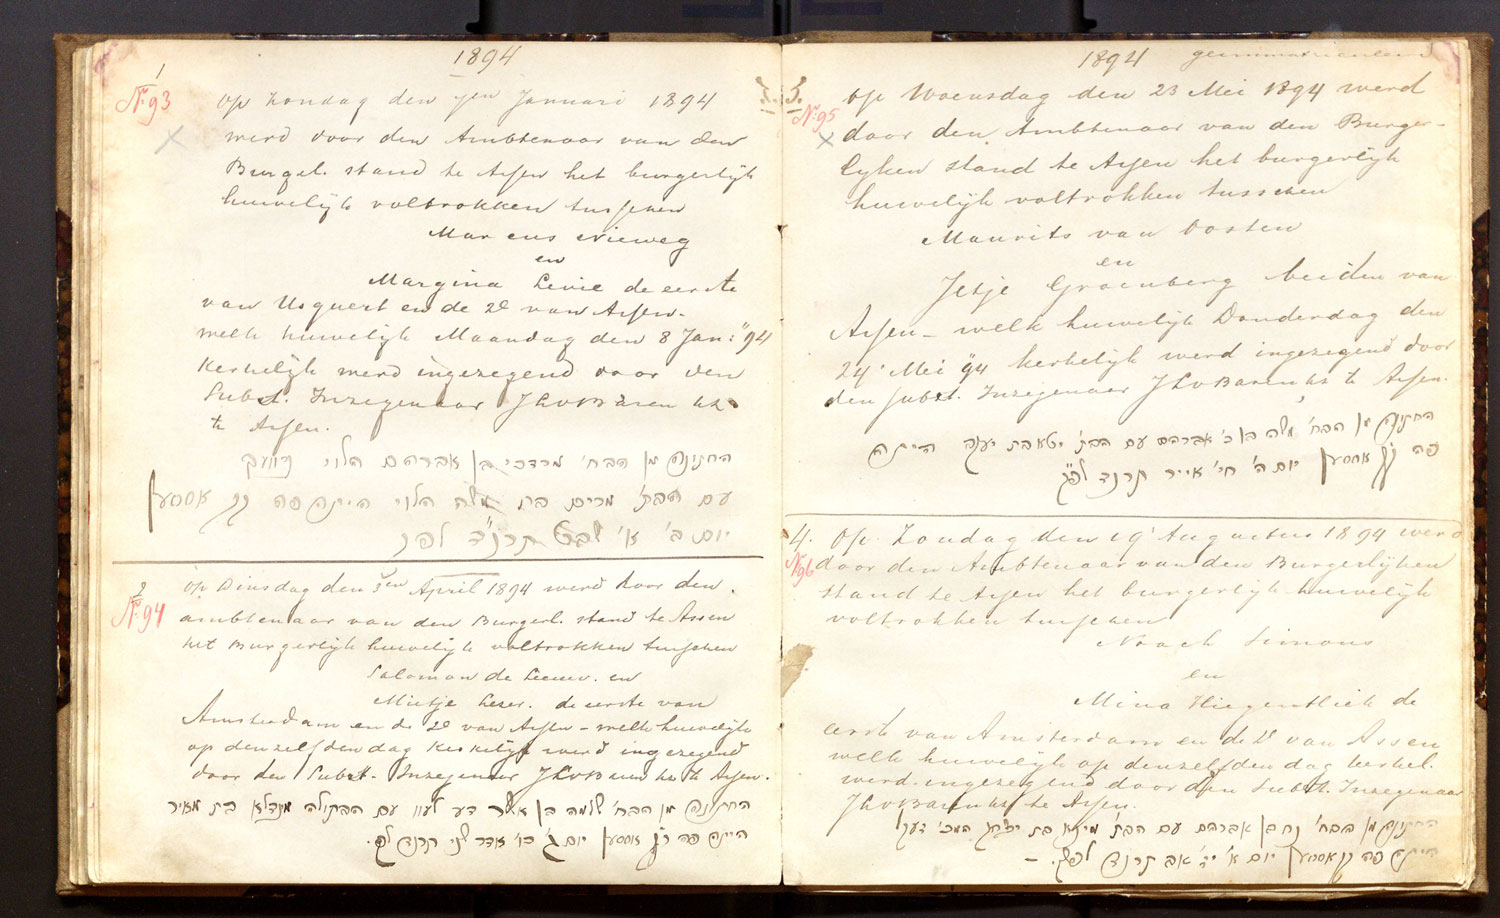 1894
1
No. 93
op Zondag den 7en Januari 1894
werd door den Ambtenaar van den
Burgel. stand te Assen het burgerlijk
huwelijk voltrokken tusschen
Marcus Nieweg
en
Margina Levie de eerste
van Usquert en de 2e van Assen.
welk huwelijk Maandag den 8 Jan: "94
Kerkelijk werd ingezegend door den
Subst. Inzegenaar
te Assen.
החתונה מן הבח' מרדכי בן אברהם הלוי
עם הבת' מרים בת משה הלוי הייתה פה ק"ק אססען
יום ב' א' שבט תרנ"ד לפ"ק
2
No. 94
op Dinsdag den 3en April 1894 werd door den
ambtenaar van den Burgerl. stand te Assen
het Burgerlijk huwelijk voltrokken tusschen
Salomon de Leeuw. en
Mietje Leser. de eerste van
Amsterdam en de 2e van Assen – welk huwelijk
op denzelfden dag Kerkelijk werd ingezegend
door den Subst. Inzegenaar te Assen.
החתונה מן הבח' שלמה בן אשר דע לעוו עם הבתולה בת מאיר
הייתה פה ק"ק אססען יום ג' כו' אדר שני תרנד לפק.
1894
3.
No. 95
op Woensdag den 23 Mei 1894 werd
door den Ambtenaar van den Burger-
lyken stand te Assen het burgerlijk
huwelijk voltrokken tusschen
Maurits van Oosten
en
Jetje Groenberg beiden van
Assen – welk huwelijk Donderdag den
24 Mei "94 kerkelijk werd ingezegend door
den subst. Inzegenaar te Assen.
החתונה מן הבח' משה בן כ' אברהם עם הבת' יטא בת יענה הייתה
פה ק"ק אססען יום ה' חי' אייר תרנד לפ"ק
4.
No. 96
Op Zondag den 19 Augustus 1894 werd
door den Ambtenaar van den Burgerlijken
stand te Assen het burgerlijk huwelijk
voltrokken tusschen
Noach Simons
en
Mina Hiegentlich de
eerste van Amsterdam en de 2e van Assen
welk huwelijk op denzelfden dag kerkel.
werd ingezegend door den Subst. Inzegenaar
te Assen.
החתונה מן הבח' נח בן אברהם עם הבת' מינא בת יצחק
הייתה פה ק"ק אססען יום א' יז' אב תרנד לפק. –